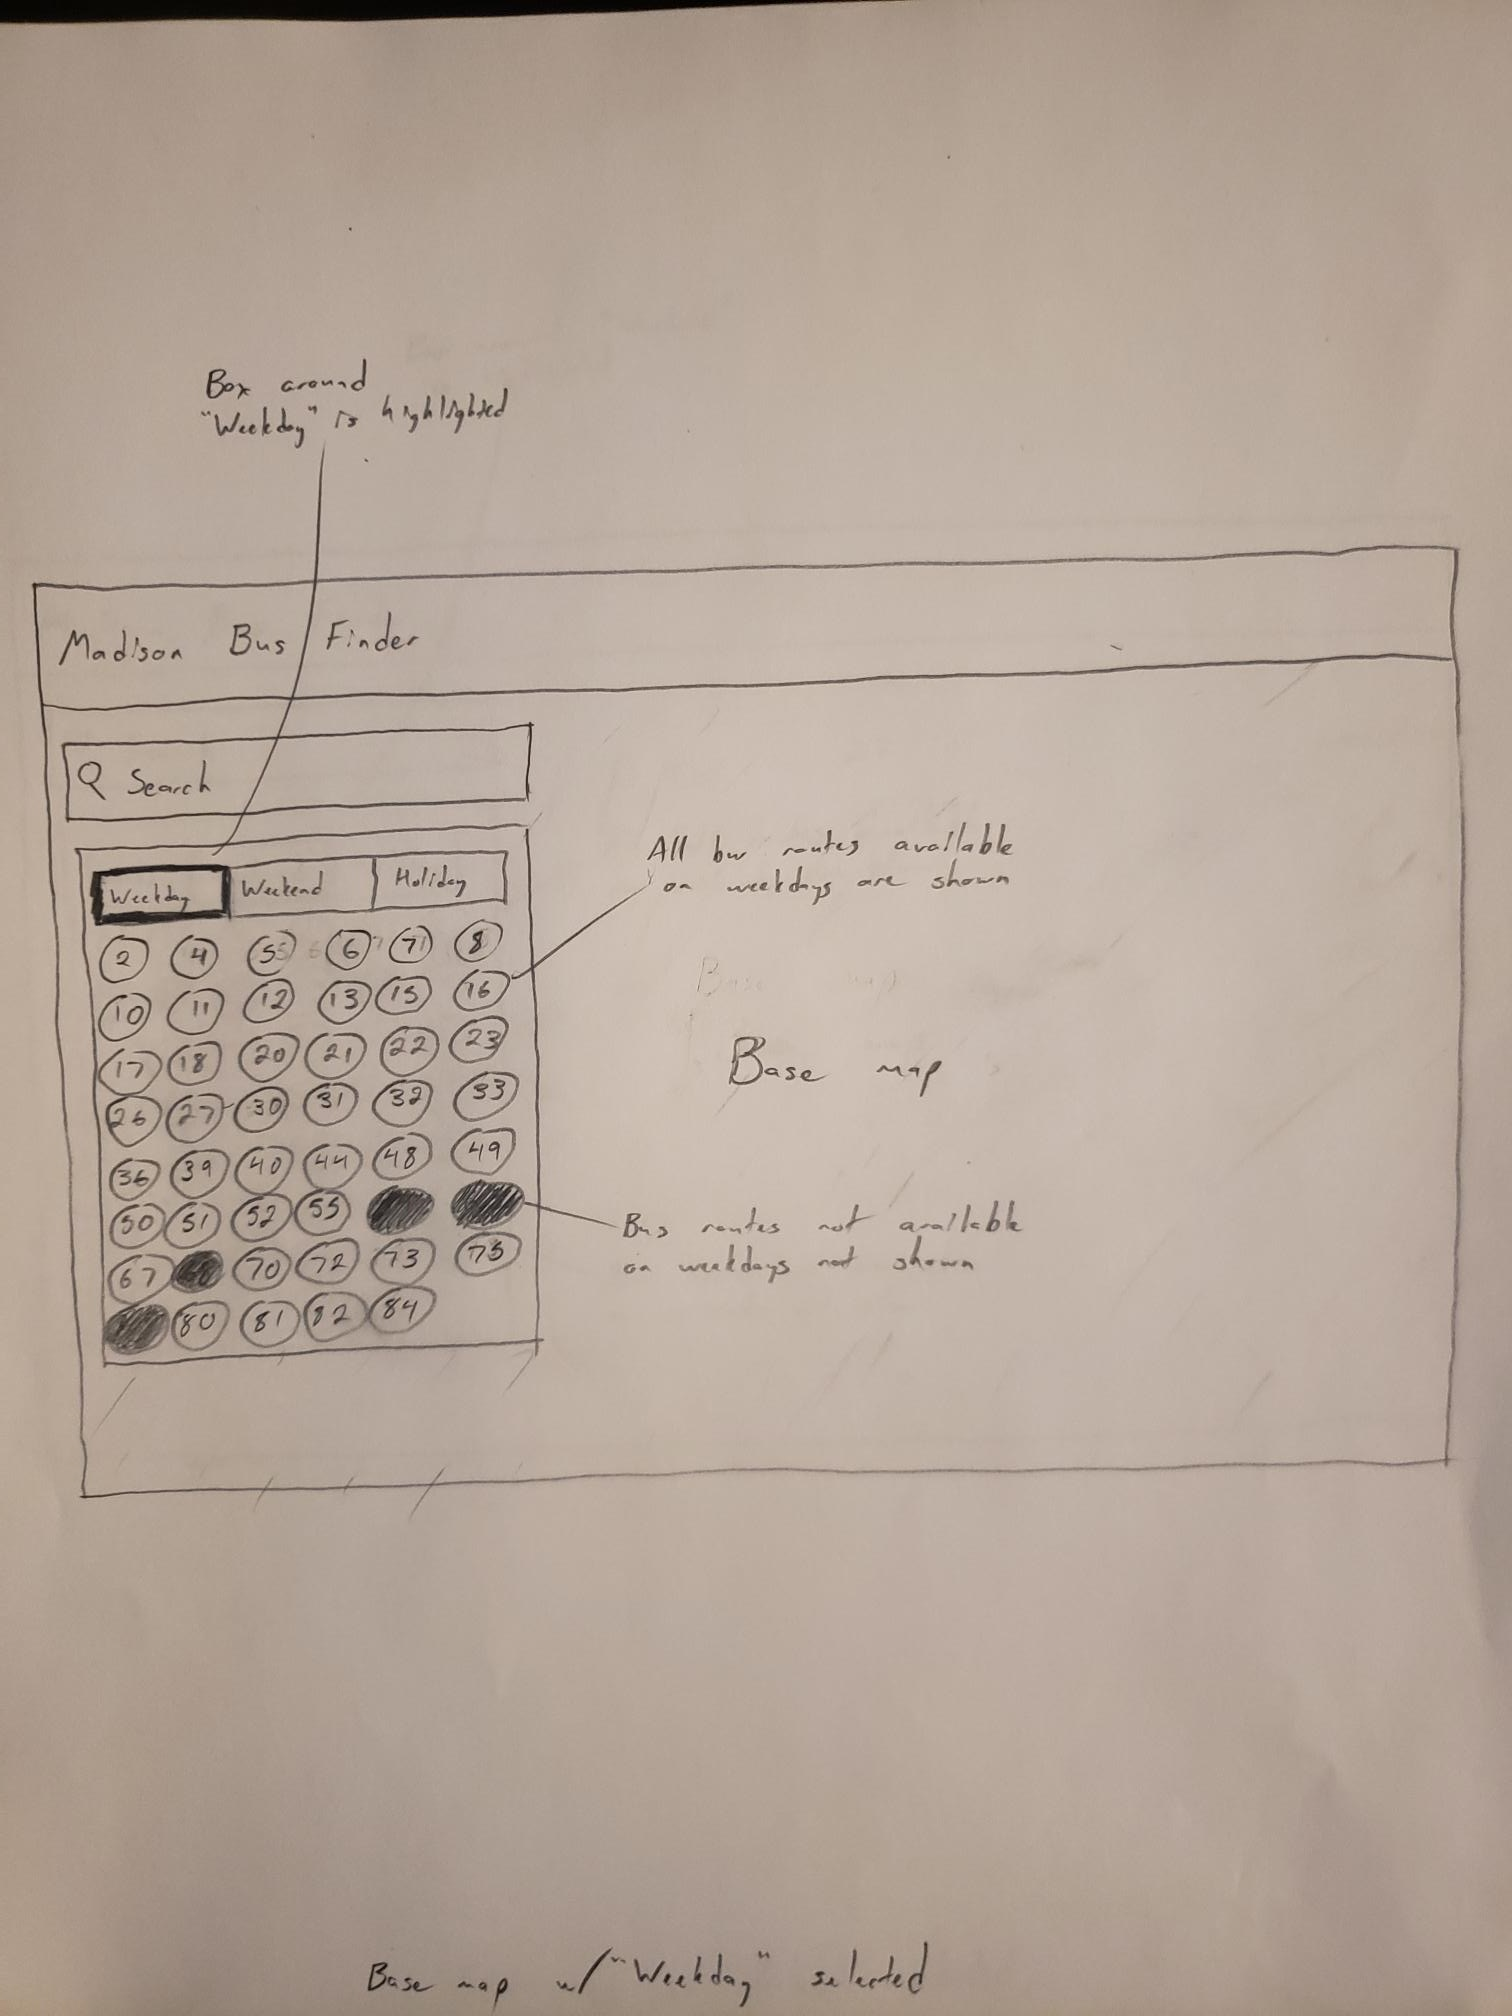 Box around
"Weekday" is highlighted
Madison Bus Finder
Search
Weekday Weekend Holiday
2 4 5 6 7 8
10 11 12 13 15 16
17 18 20 21 22 23
26 27 30 31 32 33
36 39 40 44 48 49
50 51 52 55
67 70 72 73 75
80 81 82 84
All bus routes available
on weekdays are shown
Base map
Base map
Bus routes not available
on weekdays not shown
Base map w/ "Weekday" selected